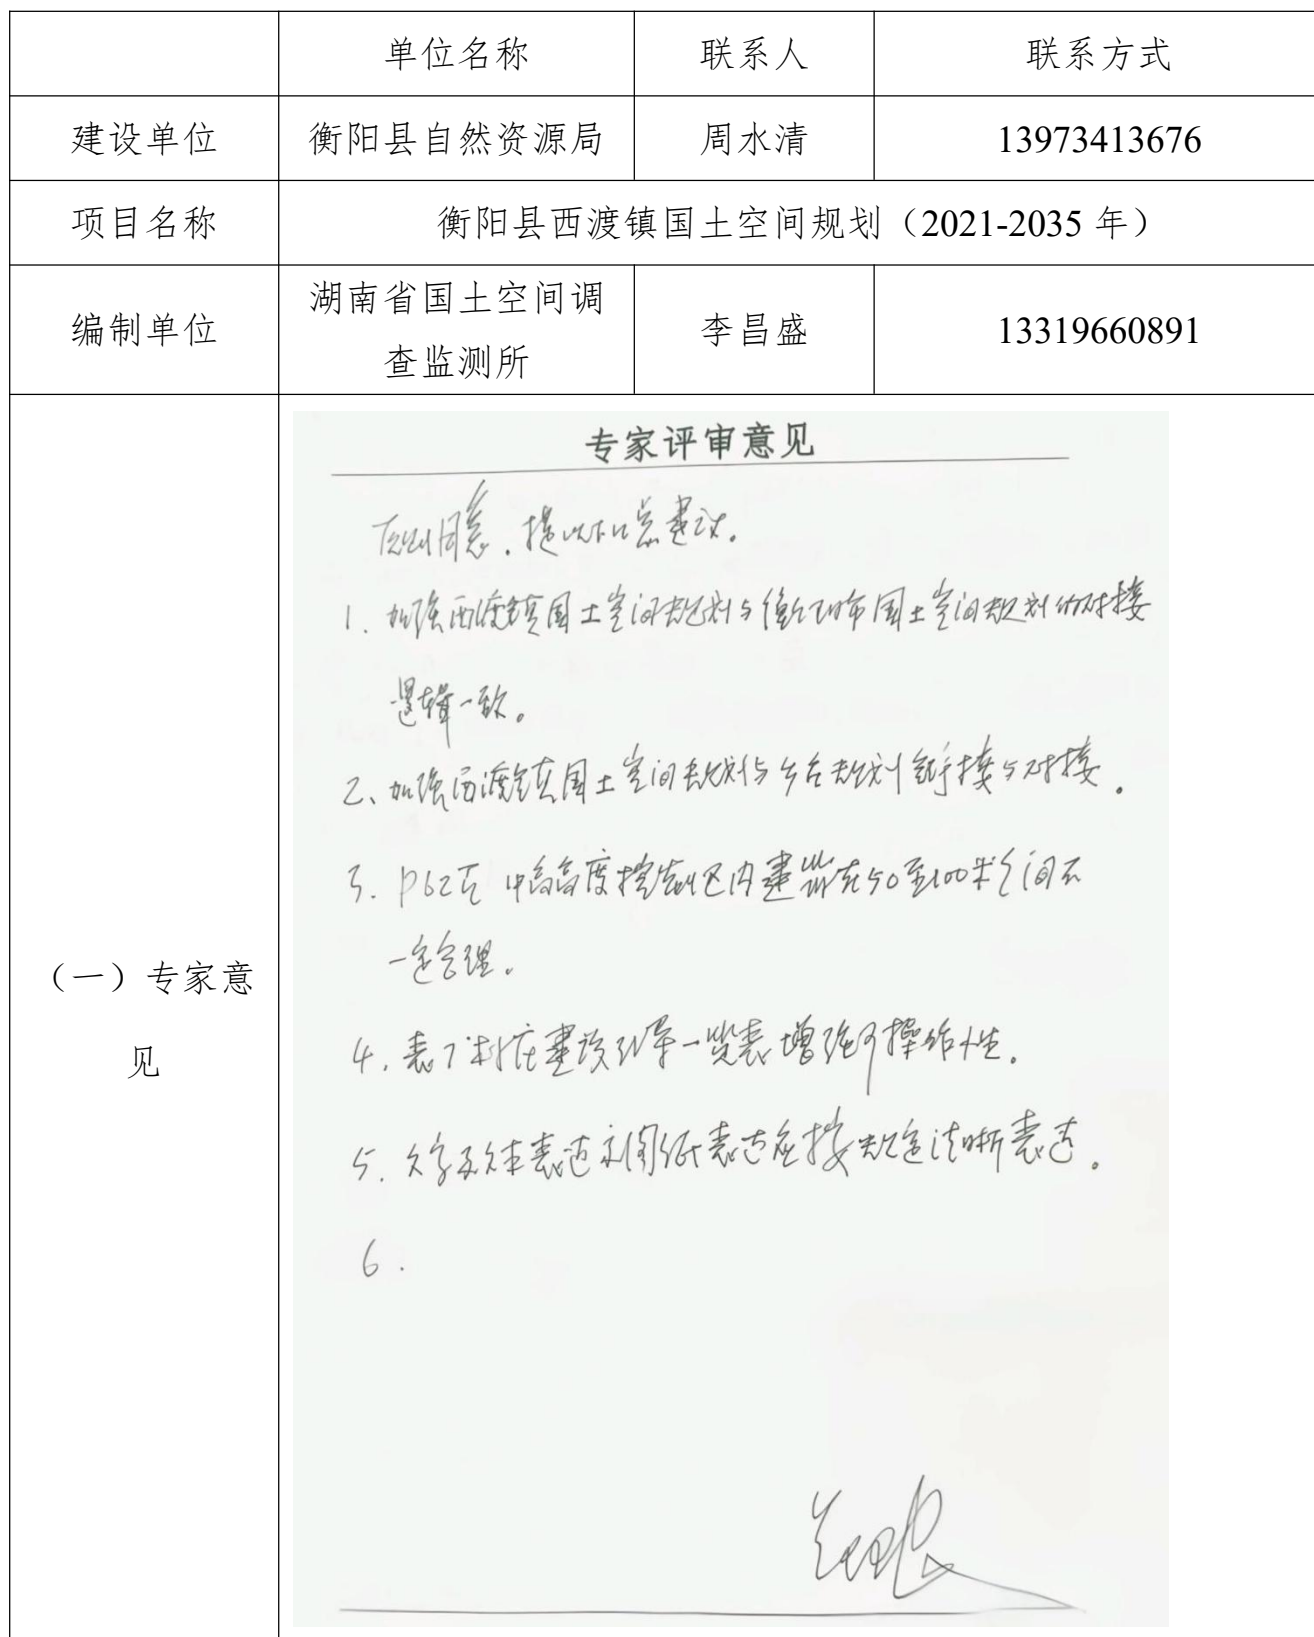 单位名称 联系人 联系方式
建设单位 衡阳县自然资源局 周水清 13973413676
项目名称 衡阳县西渡镇国土空间规划（2021-2035 年）
编制单位 湖南省国土空间调
查监测所 李昌盛 13319660891
（一）专家意
见
专家评审意见
原则同意．提以下几点建议。
1. 加强西渡镇国土空间规划与衡阳市国土空间规划的对接
逻辑一致。
2、加强西渡镇国土空间规划与 规划衔接与对接．
3. P62页 中高高度控制区内建筑在50至100米之间不
一定合理。
4. 表7村庄建设引导一览表增强可操作性．
5. 文字及文本表达和图纸表达应按规定清晰表达．
6.